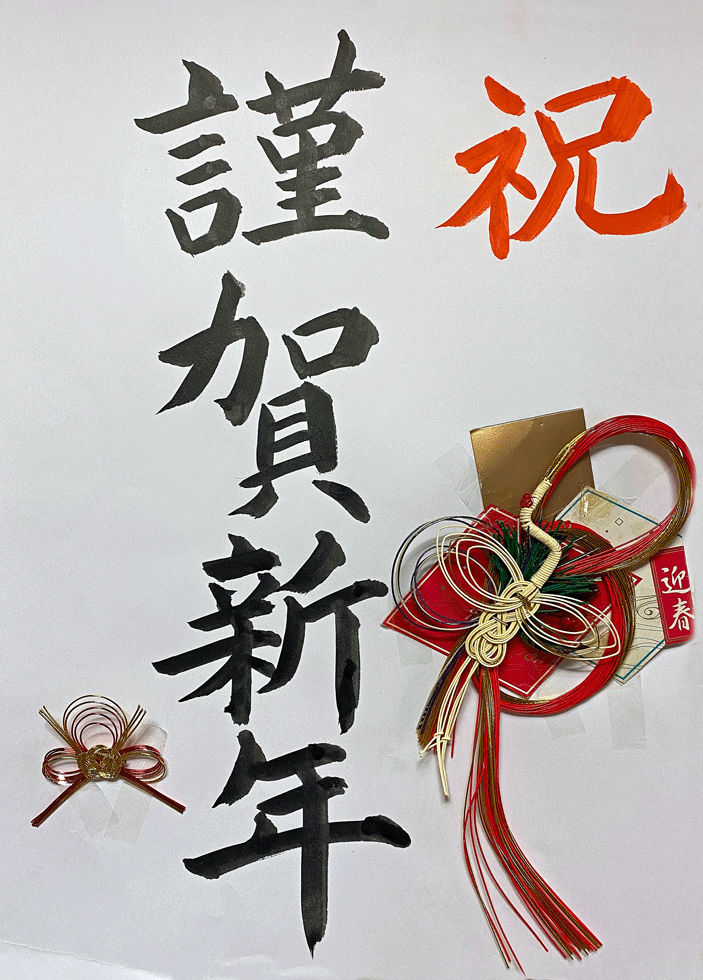 祝
謹賀新年
迎春